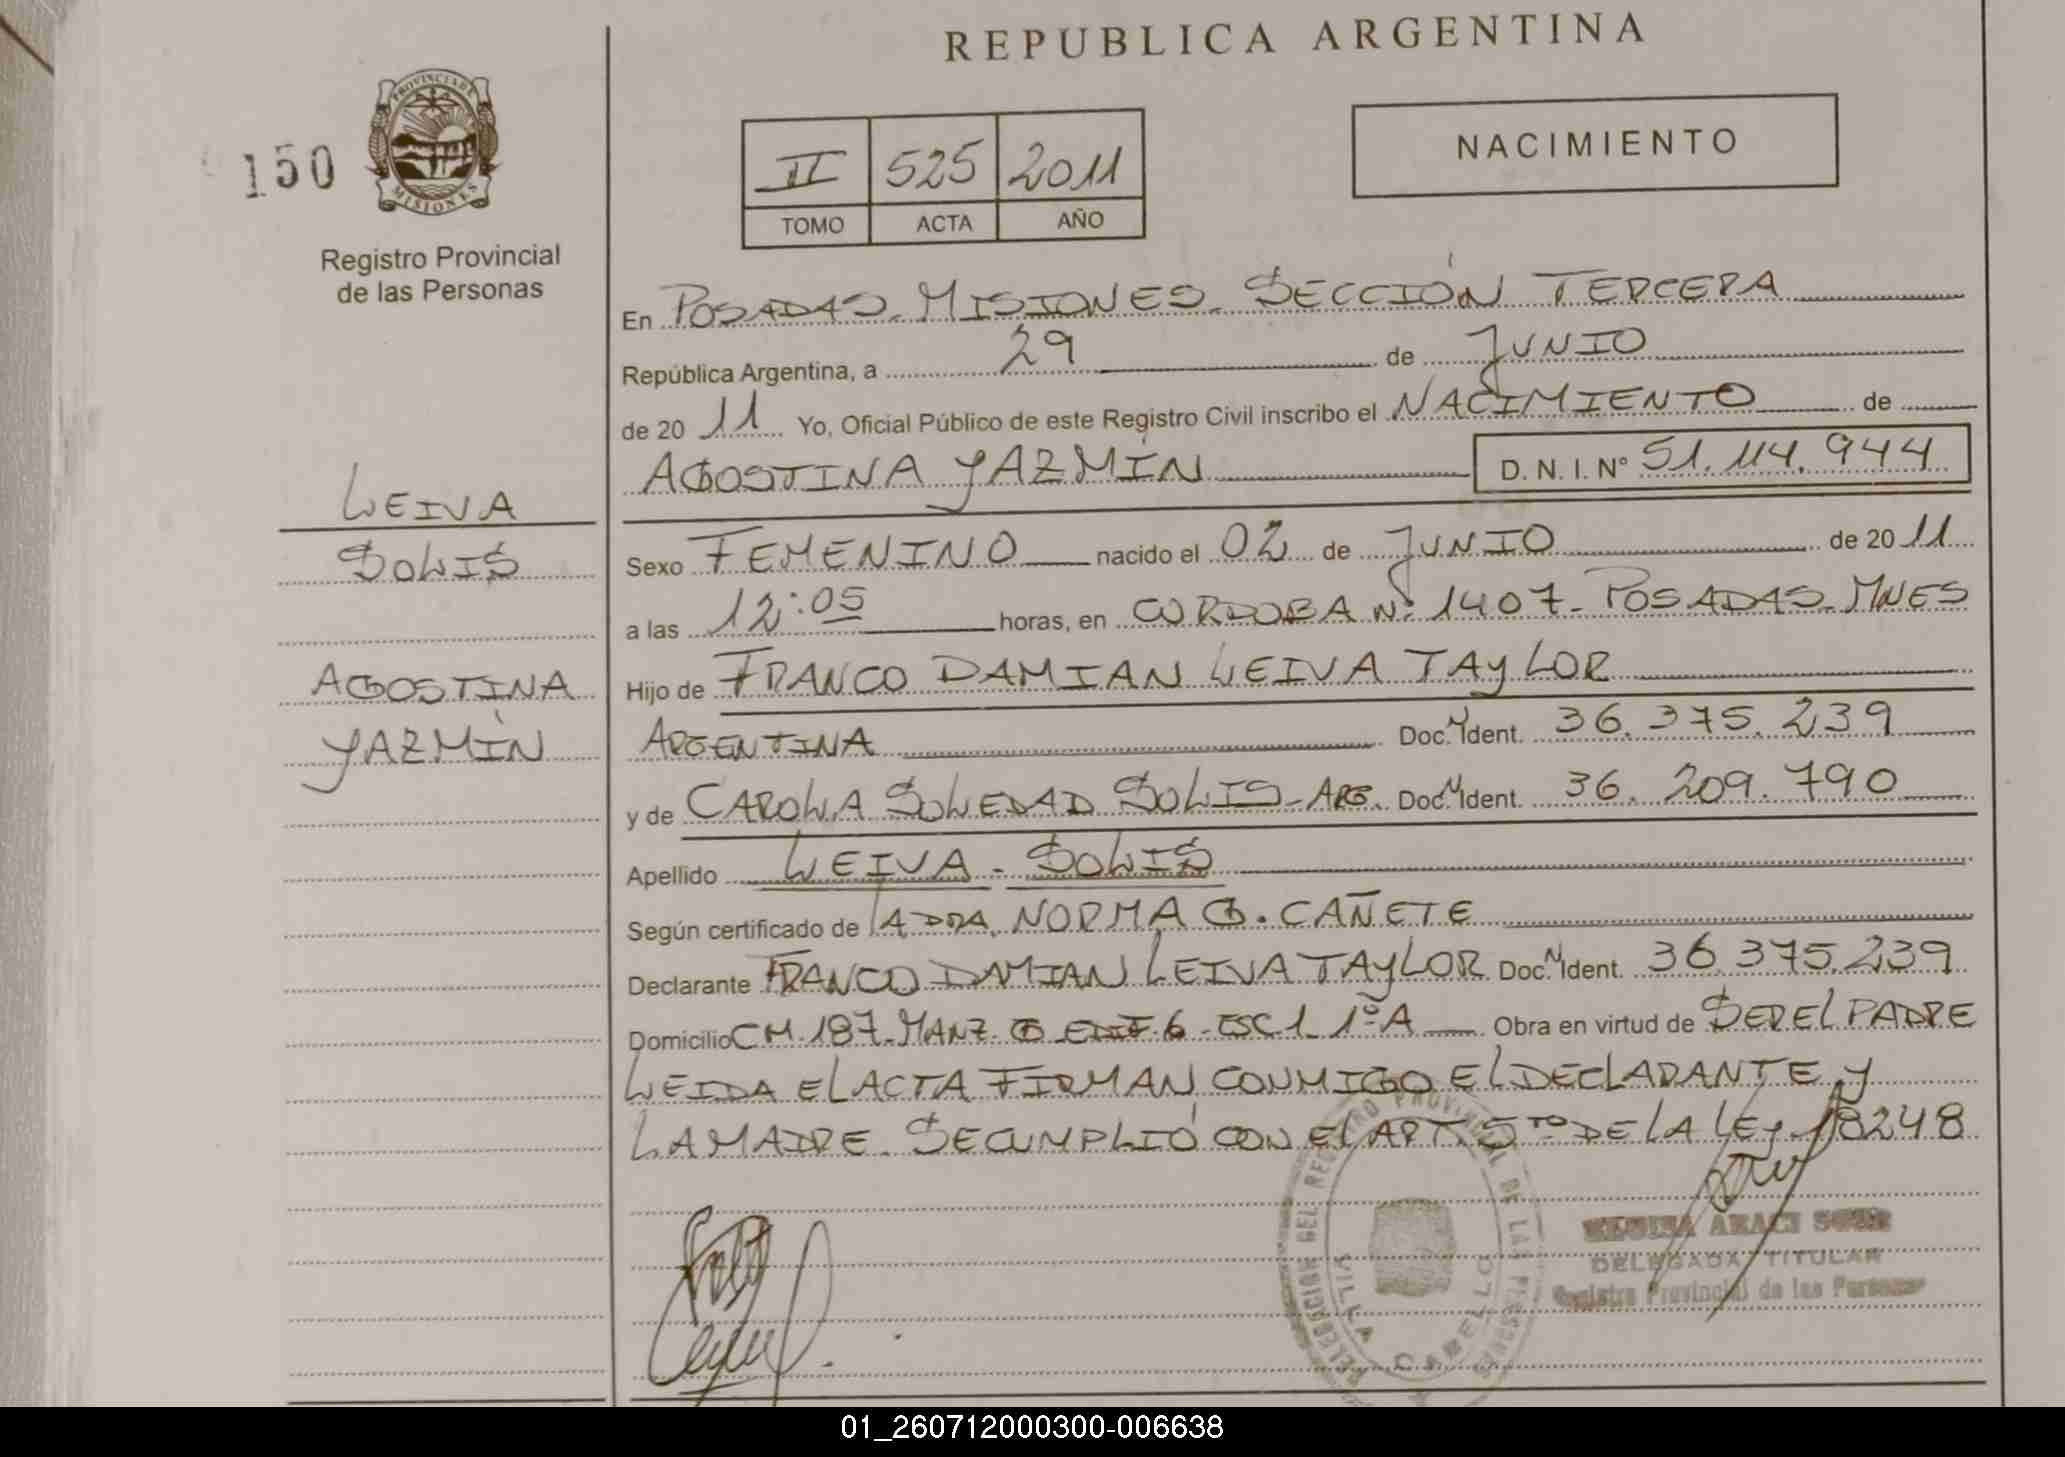 REPUBLICA ARGENTINA
150
PROVINCIA DE
MISIONES
Registro Provincial
de las Personas
II 525 2011
TOMO ACTA AÑO
NACIMIENTO
En POSADAS - MISIONES - SECCIÓN TERCERA
República Argentina, a 29 de JUNIO
de 2011 Yo, Oficial Público de este Registro Civil inscribo el NACIMIENTO de
AGOSTINA YAZMÍN D. N. I. Nº 51.114.944
LEIVA
SOLIS
AGOSTINA
YAZMÍN
Sexo FEMENINO nacido el 02 de JUNIO de 2011
a las 12:05 horas, en CORDOBA Nº 1407 - POSADAS - MNES
Hijo de FRANCO DAMIAN LEIVA TAYLOR
ARGENTINA Doc. N Ident. 36.375.239
y de CAROLA SOLEDAD SOLIS - ARG. Doc. N Ident. 36.209.790
Apellido LEIVA - SOLIS
Según certificado de LA DRA. NORMA G. CAÑETE
Declarante FRANCO DAMIAN LEIVA TAYLOR Doc. N Ident. 36.375.239
Domicilio CH. 187 - MANZ. G EDIF. 6 - ESC 1 1º A Obra en virtud de SER EL PADRE
LEIDA EL ACTA FIRMAN CONMIGO EL DECLARANTE Y
LA MADRE. SE CUMPLIÓ CON EL ART. 5TO DE LA LEY 18248
DELEGACION DEL REGISTRO PROVINCIAL DE LAS PERSONAS
VILLA CABELLO
DELEGADA TITULAR
Registro Provincial de las Personas
01_260712000300-006638